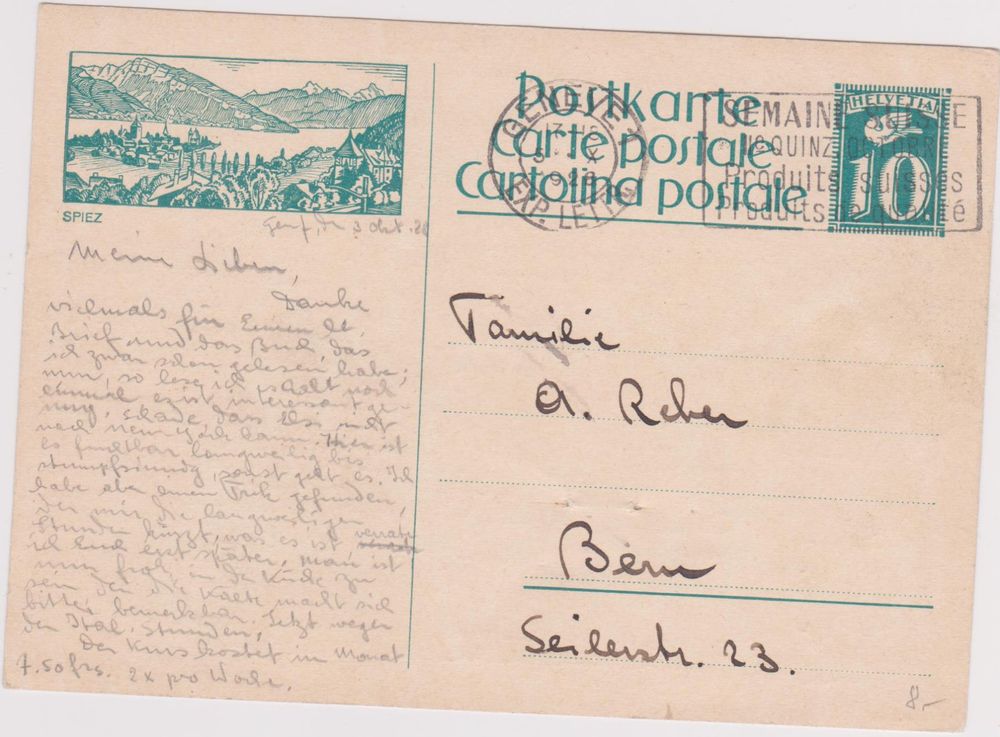 SPIEZ
Postkarte
Carte postale
Cartolina postale
HELVETIA
10
GENÈVE 1
EXP. LETTR
SEMAINE SUISSE
Produits suisses
Produits de qualité
Genf, den 3 Okt. 28
Meine Lieben,
Danke
vielmals für Euren lb.
Brief und das Buch, das
ich zwar schon gelesen habe;
nun, so lese ich es halt noch
einmal, es ist interessant ge-
nug, schade, dass Elsi nicht
nach New York kann. Hier ist
es furchtbar langweilig bis
stumpfsinnig, sonst geht es. Ich
habe aber einen Trik gefunden,
der mir die langweiligen
Stunden kürzt, was es ist, verrate
ich Euch erst später. Man ist
nun froh in der Küche zu
sein, denn die Kälte macht sich
bitter bemerkbar. Jetzt wegen
den Ital. Stunden,
Der Kurs kostet im Monat
7.50 frs. 2x pro Woche.
Familie
A. Reber
Bern
Seilerstr. 23.
8.-